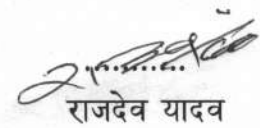 राजदेव यादव